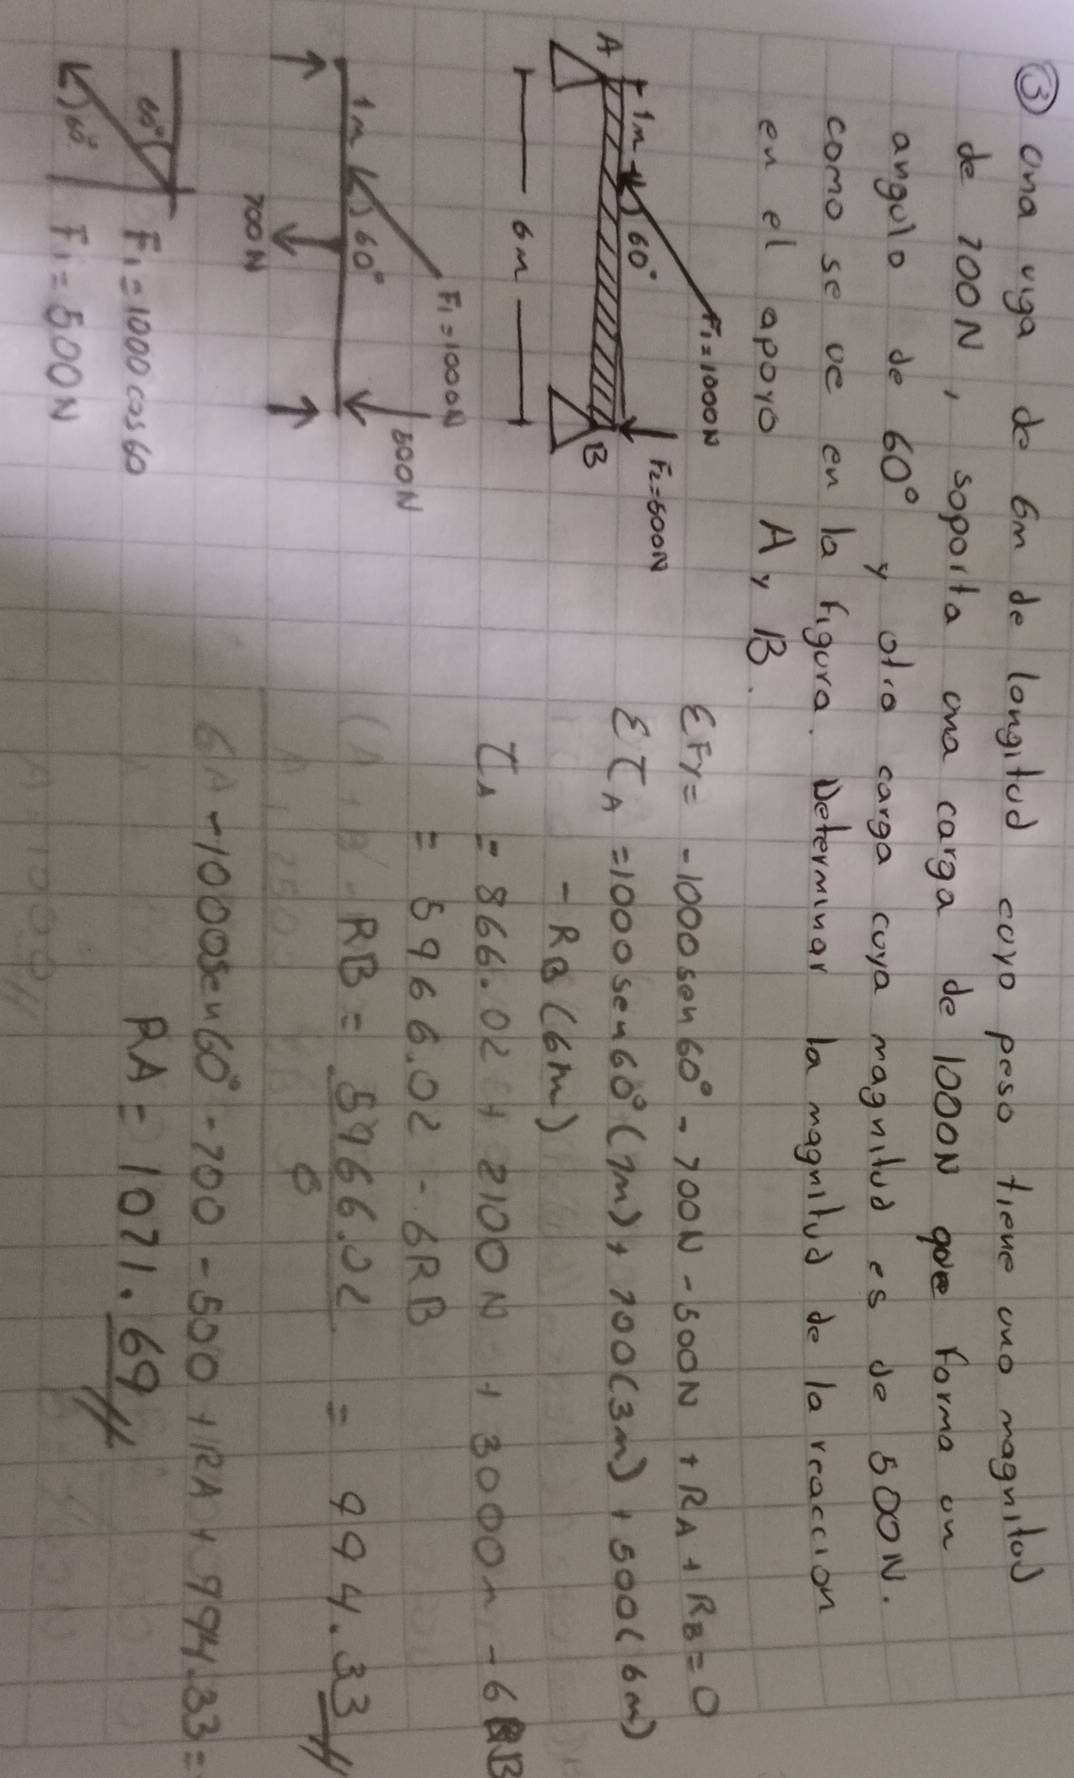 ③ Una viga de 6m de longitud cuyo peso tiene una magnitud
de 700N, soporta una carga de 1000N que forma un
angulo de 60° y otra carga cuya magnitud es de 500N.
como se ve en la figura. Determinar la magnitud de la reaccion
en el apoyo A y B.
F1=1000N
F2=500N
A
1m
60°
B
6m
F1=1000N
500N
1m
60°
700N
60°
60°
F1=1000 cos 60
F1=500N
ΣFy= -1000sen60° - 700N - 500N + RA + RB = 0
ΣτA = 1000sen60° (1m) + 700(3m) + 500(6m)
- RB (6m)
τA = 866.02 + 2100N + 3000n - 6RB
= 5966.02 - 6RB
RB = 5966.02 = 994.33
6
-1000sen60° - 700 - 500 + RA + 994.33 =
RA = 1071.69